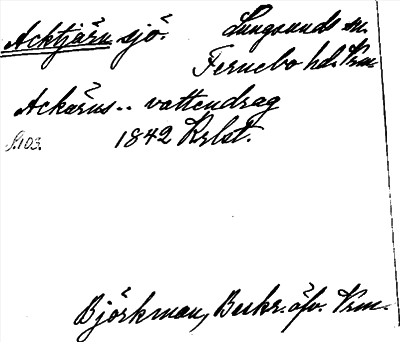 Acktjärn sjö. Lungsunds sn.
Fernebo hd. Vrm.
Ackärns-- vattendrag
S.103. 1842 Krlst.
Björkman, Beskr. öfv. Vrm.